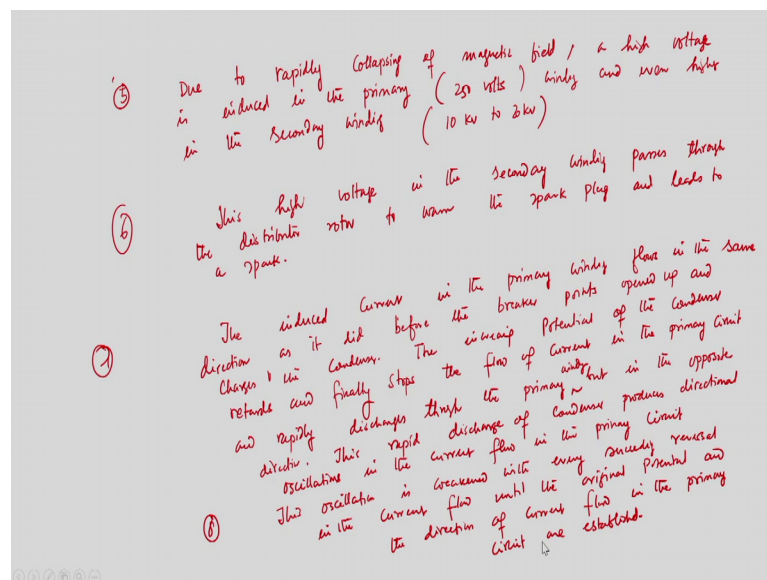 (5) Due to rapidly collapsing of magnetic field, a high voltage
is induced in the primary (250 volts) windg and even higher
in the seconday windig (10 kv to 20 kv)
(6) This high voltage in the seconday windig passes through
the distributor rotor to warm the spark plug and leads to
a spark.
(7) The induced current in the primary windg flows in the same
direction as it did before the breaker points opened up and
charges the condenser. The increasig potential of the condenser
retards and finally stops the flow of current in the primary circuit
and rapidly discharges throgh the primary windg but in the opposite
direction. This rapid discharge of condenser produces directional
oscillations in the current flow in the primary circuit
(8) This oscillation is weakened with every succedig reversal
in the current flow until the original potential and
the direction of current flow in the primary
circuit are established.